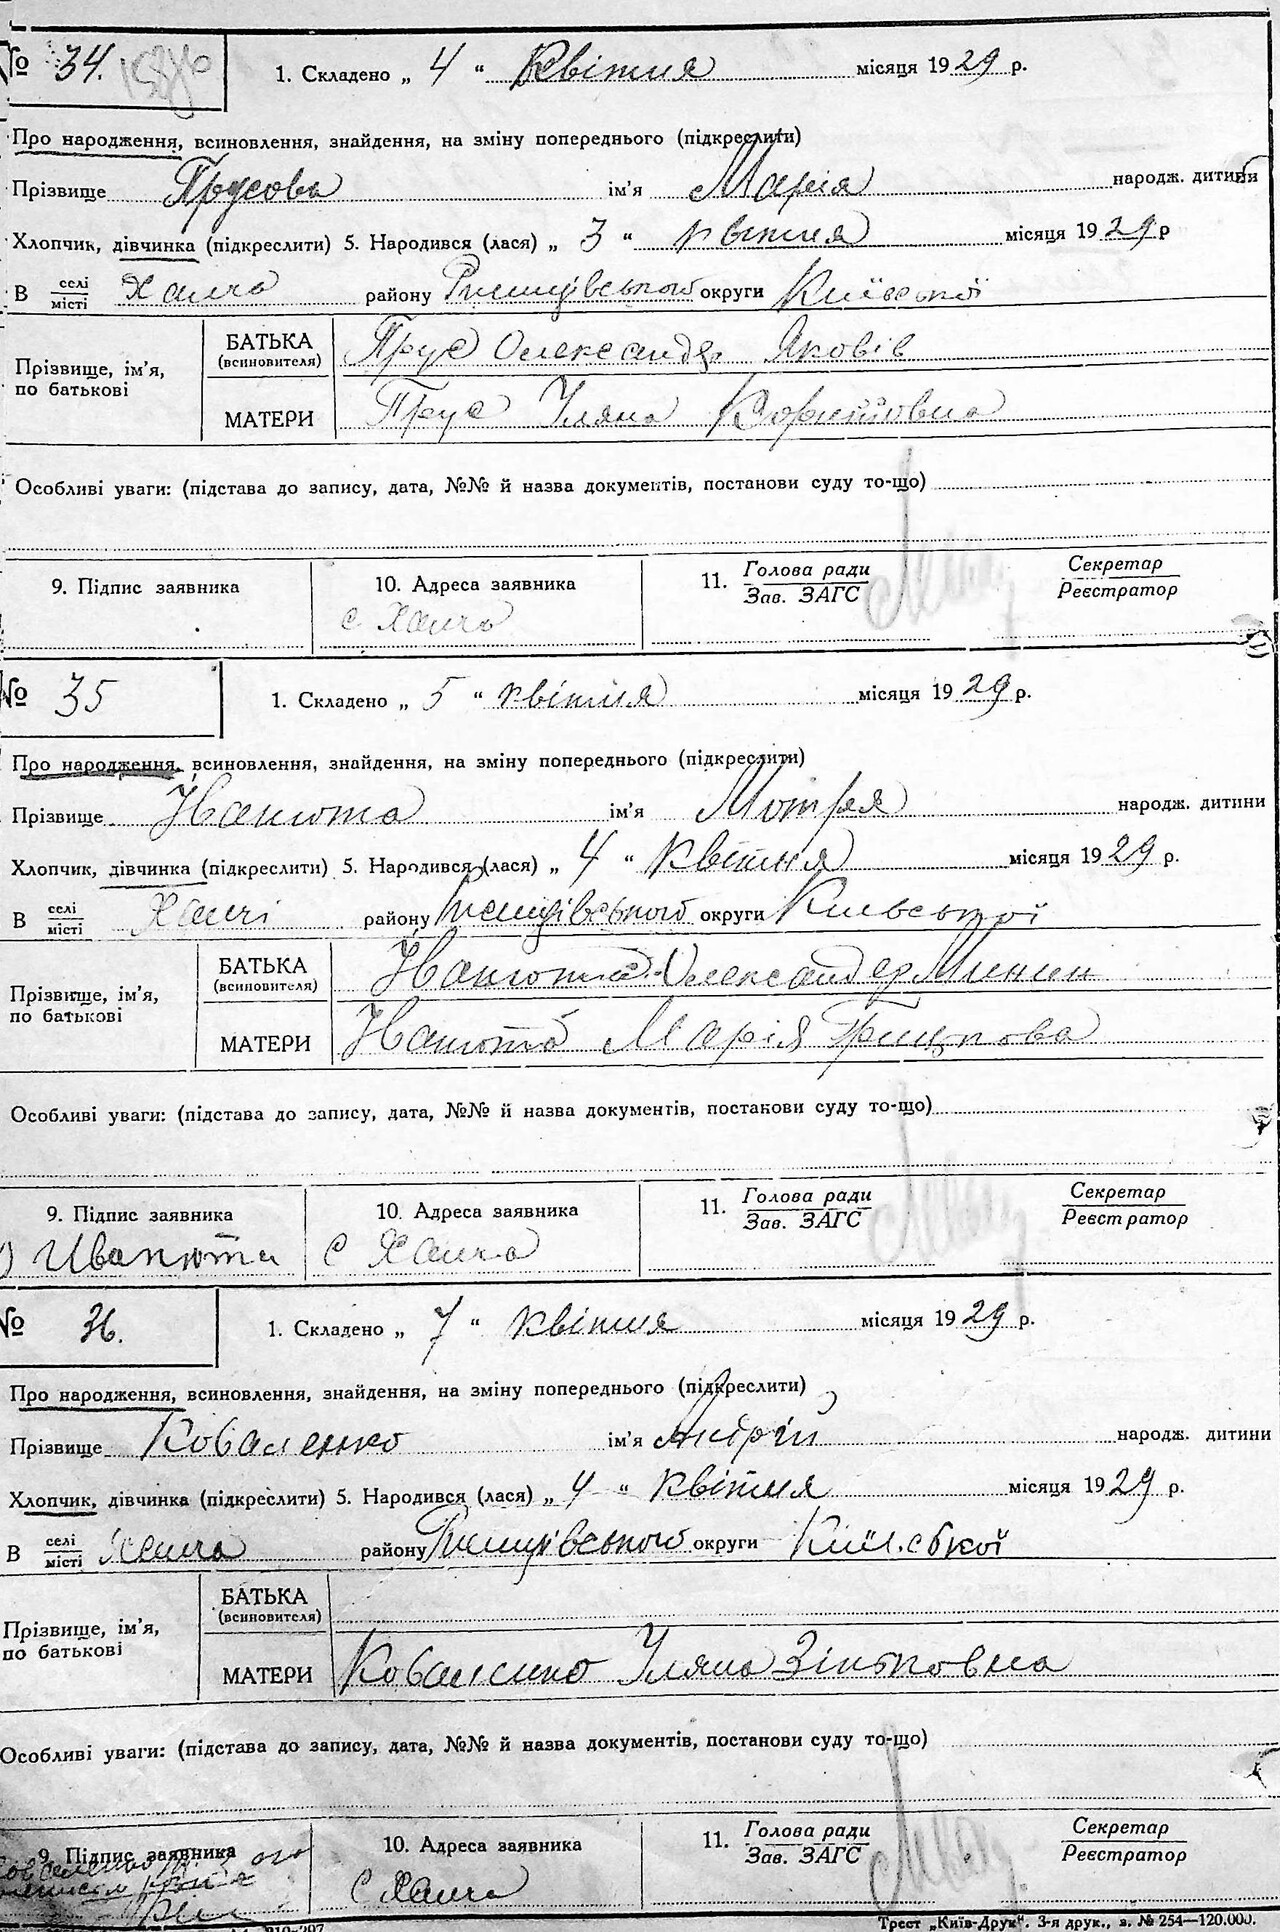 № 34. 1. Складено „ 4 “ Квітня місяця 1929 р.
Про народження, всиновлення, знайдення, на зміну попереднього (підкреслити)
Прізвище Прусова ім'я Марія народж. дитини
Хлопчик, дівчинка (підкреслити) 5. Народився (лася) „ 3 “ квітня місяця 1929 р
В селі/місті Халча району Ржищівського округи Київської
Прізвище, ім'я, по батькові
БАТЬКА (всиновителя) Прус Олександр Яковів
МАТЕРИ Прус Уляна
Особливі уваги: (підстава до запису, дата, №№ й назва документів, постанови суду то-що)
9. Підпис заявника 10. Адреса заявника 11. Голова ради/Зав. ЗАГС Секретар/Реєстратор
с Халча
№ 35 1. Складено „ 5 “ квітня місяця 1929 р.
Про народження, всиновлення, знайдення, на зміну попереднього (підкреслити)
Прізвище Іванюта ім'я Мотря народж. дитини
Хлопчик, дівчинка (підкреслити) 5. Народився (лася) „ 4 “ Квітня місяця 1929 р.
В селі/місті Халчі району Ржищівського округи Київської
Прізвище, ім'я, по батькові
БАТЬКА (всиновителя) Іванюта Олександер Минин
МАТЕРИ Іванюта Марія Грицькова
Особливі уваги: (підстава до запису, дата, №№ й назва документів, постанови суду то-що)
9. Підпис заявника 10. Адреса заявника 11. Голова ради/Зав. ЗАГС Секретар/Реєстратор
Иванюта с Халча
№ 36. 1. Складено „ 7 “ квітня місяця 1929 р.
Про народження, всиновлення, знайдення, на зміну попереднього (підкреслити)
Прізвище Коваленко ім'я Андрій народж. дитини
Хлопчик, дівчинка (підкреслити) 5. Народився (лася) „ 4 “ Квітня місяця 1929 р.
В селі/місті Халча району Ржищівського округи Київської
Прізвище, ім'я, по батькові
БАТЬКА (всиновителя)
МАТЕРИ Коваленко Уляна Зіньковна
Особливі уваги: (підстава до запису, дата, №№ й назва документів, постанови суду то-що)
9. Підпис заявника 10. Адреса заявника 11. Голова ради/Зав. ЗАГС Секретар/Реєстратор
с Халча
Трест „Київ-Друк“. 3-я друк., з. № 254—120.000.